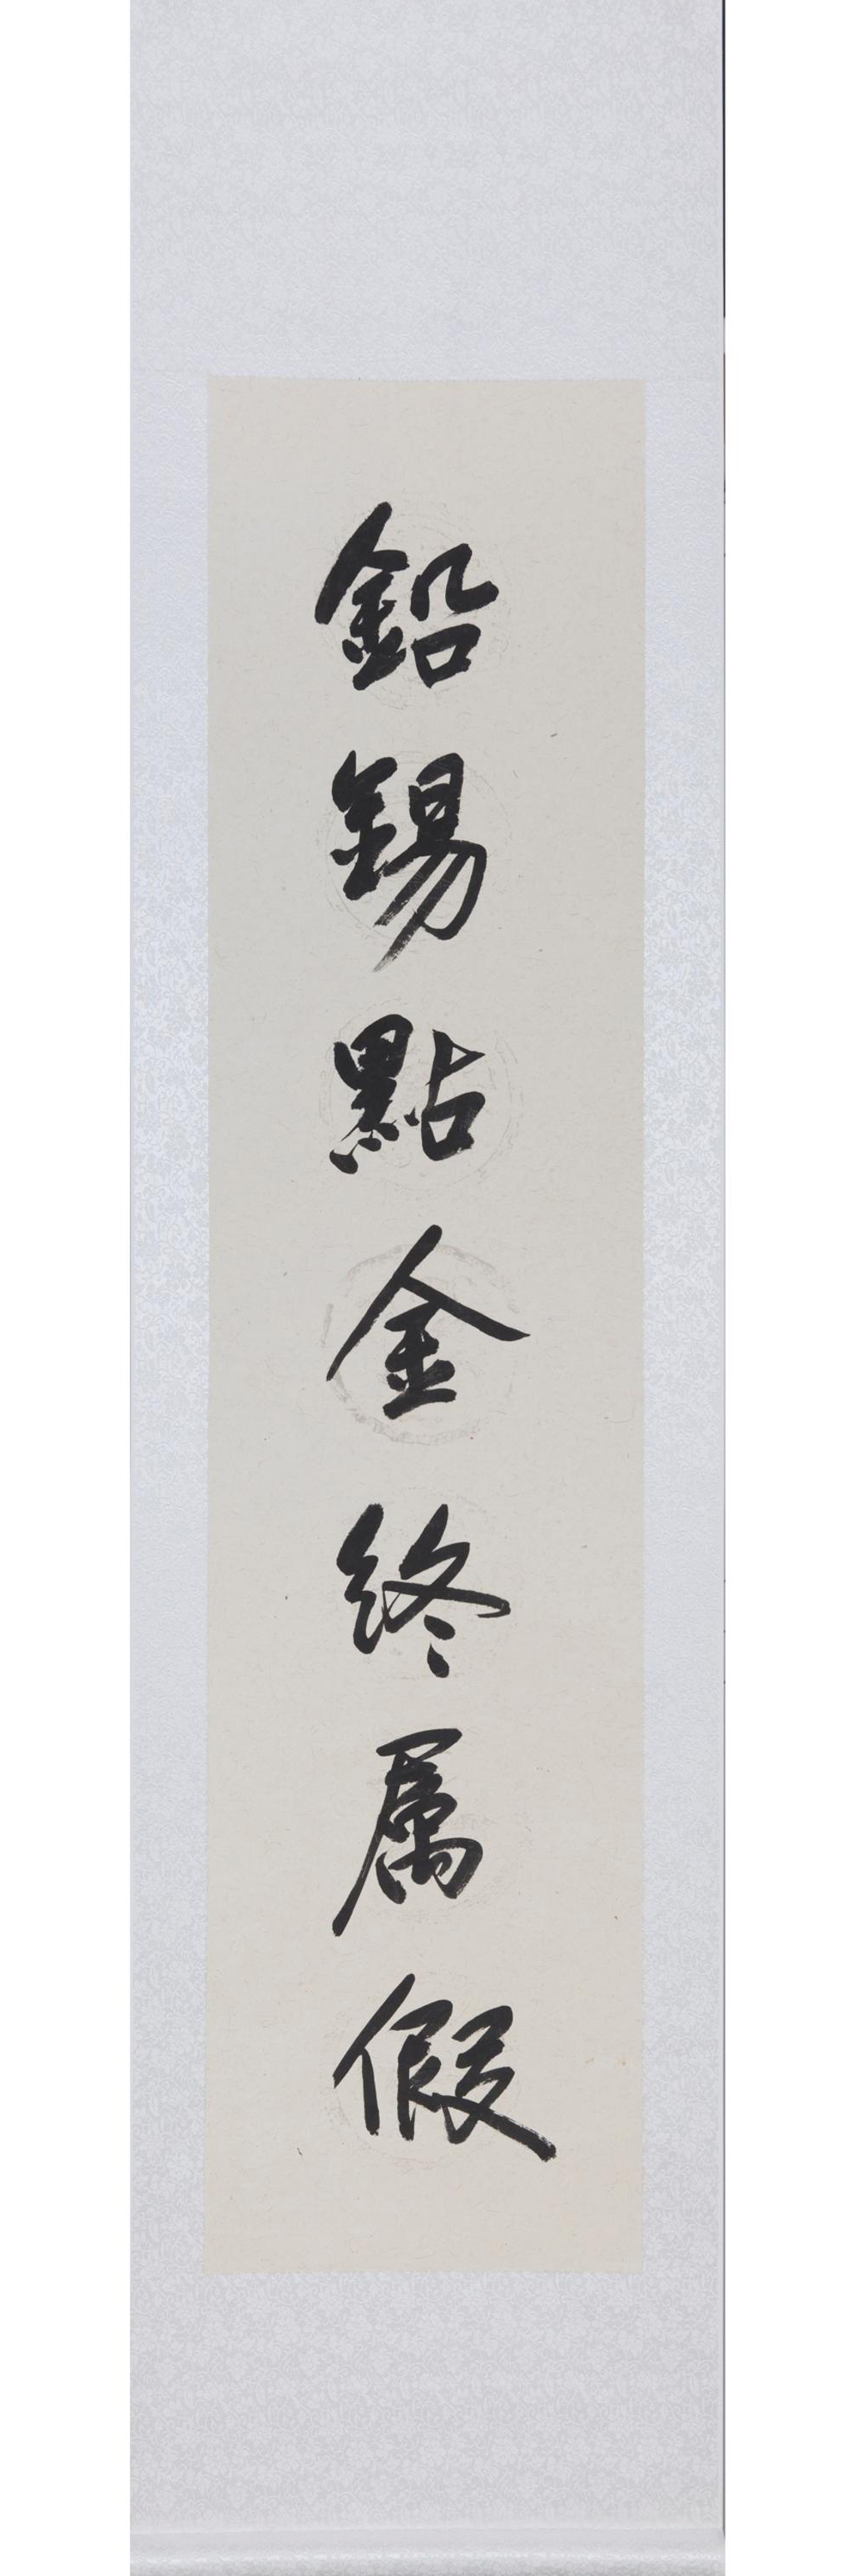 鉛錫點金終属假